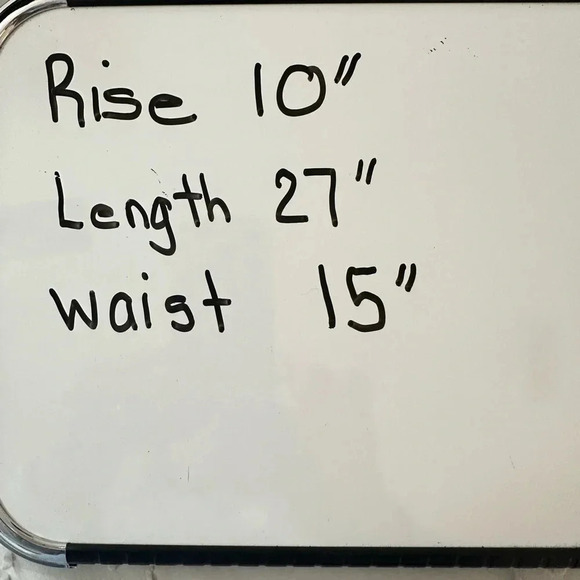 Rise 10"
Length 27"
Waist 15"